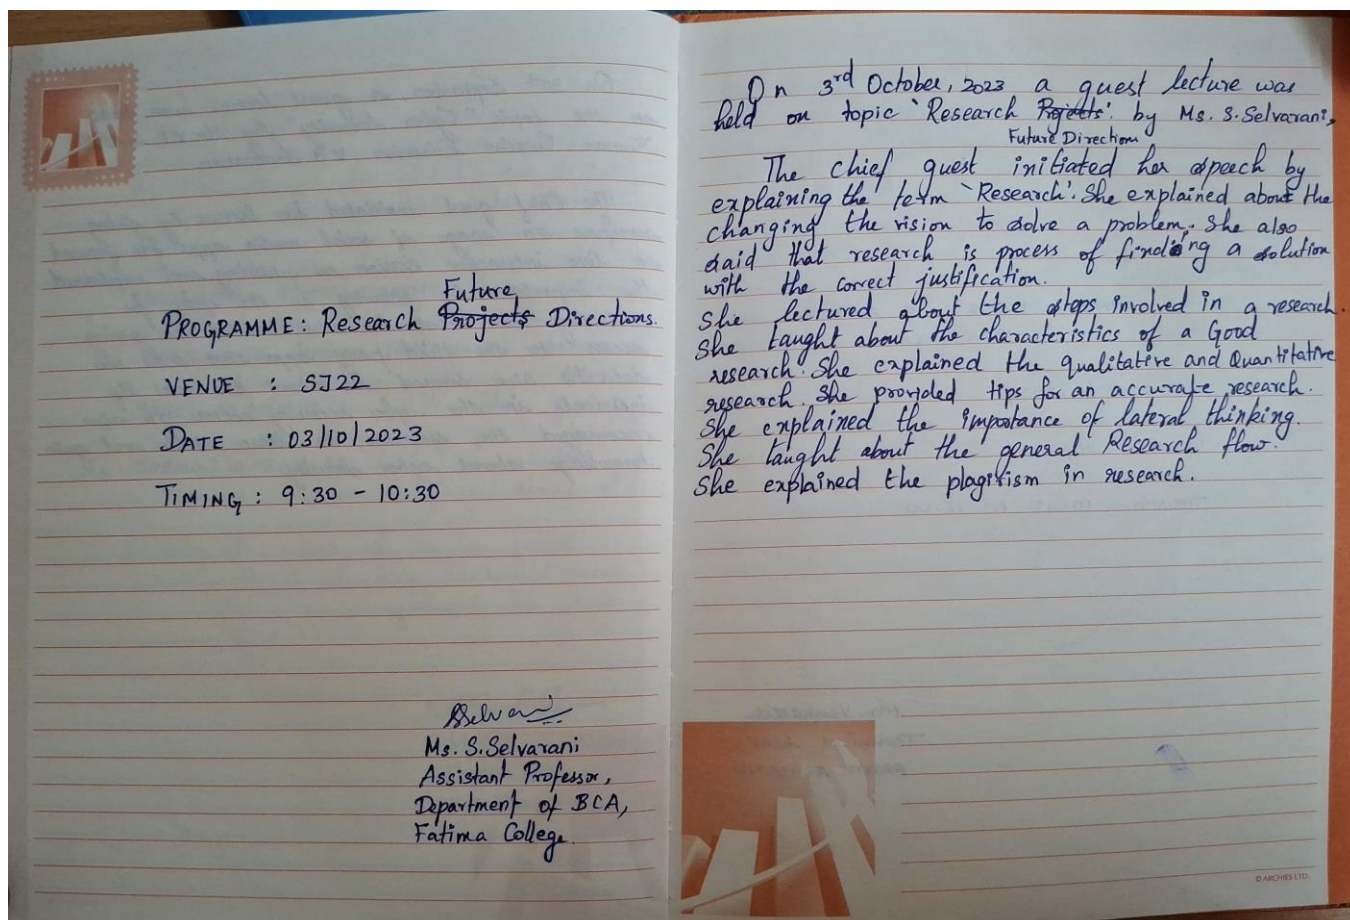 Future
PROGRAMME: Research Projects Directions.
VENUE : SJ22
DATE : 03/10/2023
TIMING : 9:30 - 10:30
Ms. S. Selvarani
Assistant Professor,
Department of BCA,
Fatima College.
On 3rd October, 2023 a guest lecture was
held on topic 'Research Projects'. by Ms. S. Selvarani,
Future Directions
The chief guest initiated her speech by
explaining the term 'Research'. She explained about the
changing the vision to solve a problem. She also
said that research is process of finding a solution
with the correct justification.
She lectured about the steps involved in a research.
She taught about the characteristics of a Good
research. She explained the qualitative and Quantitative
research. She provided tips for an accurate research.
She explained the importance of lateral thinking.
She taught about the general Research flow.
She explained the plagirism in research.
© ARCHIES LTD.